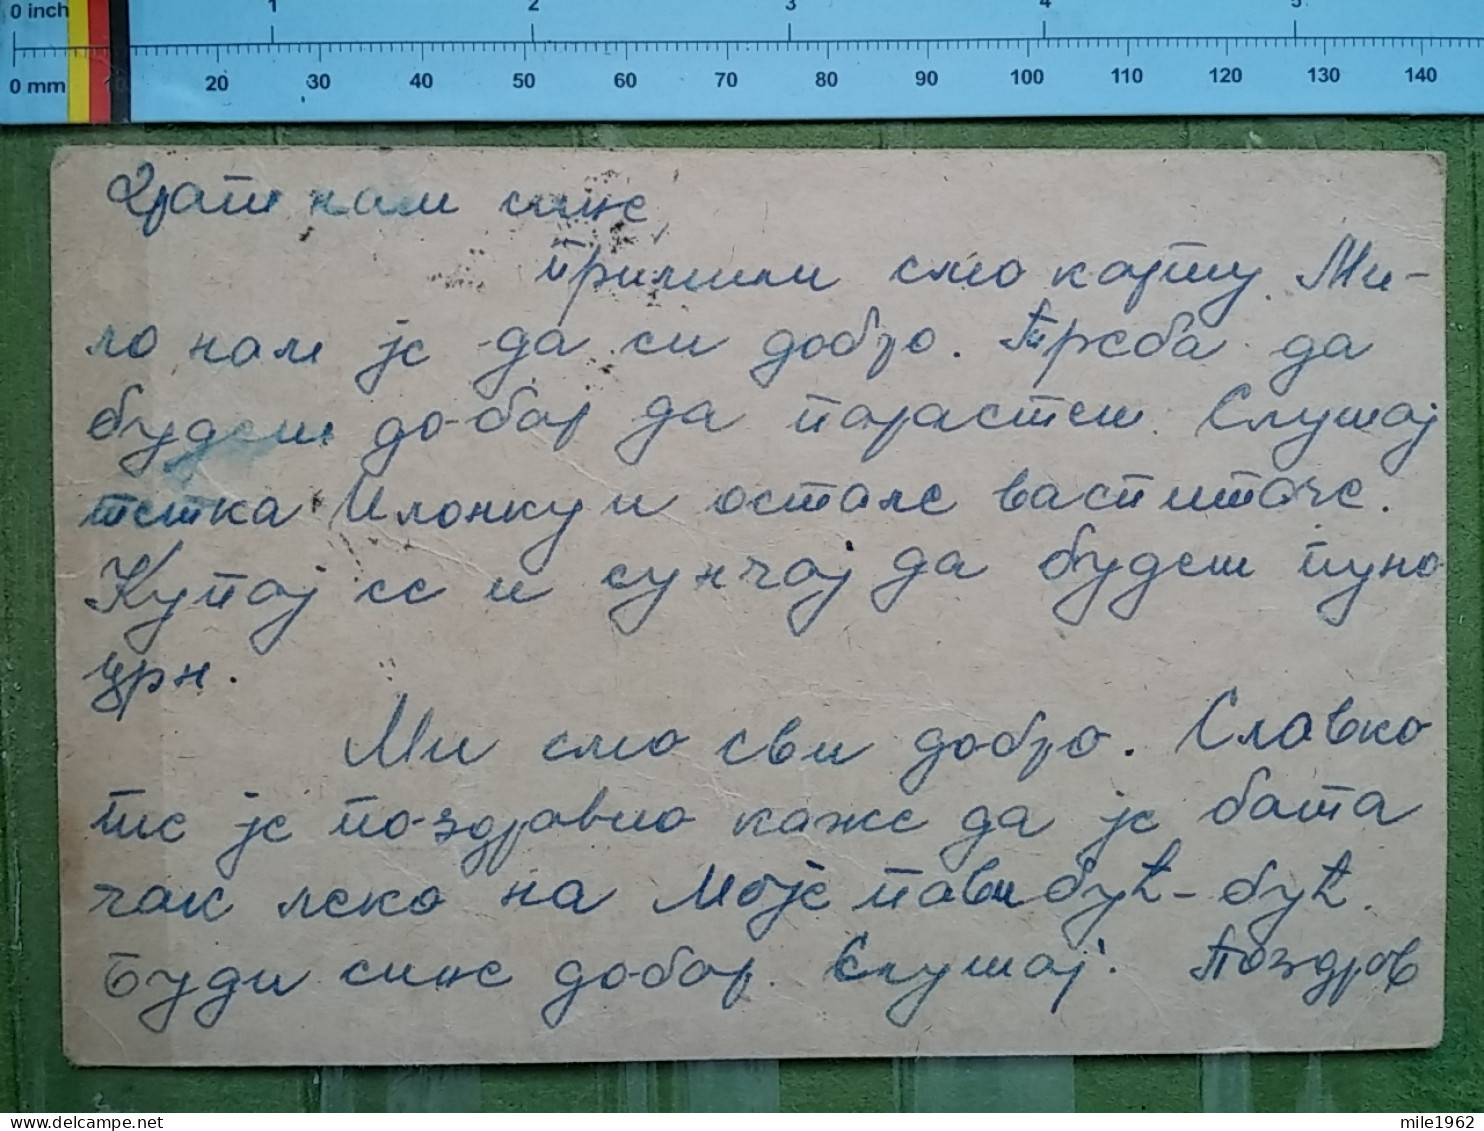 0 inch 1 2 3 4 5
0 mm 10 20 30 40 50 60 70 80 90 100 110 120 130 140
Драги нам сине
примили смо карту. Ми-
ло нам је да си добро. Треба да
будеш добар да порастеш. Слушај
тетка Илонку и остале васпитаче.
Купај се и сунчај да будеш пуно
црн.
Ми смо сви добро. Славко
те је поздравио каже да је бата
чак леко на Моје бућ-бућ.
Буди сине добар. Слушај. Поздров
mile1962